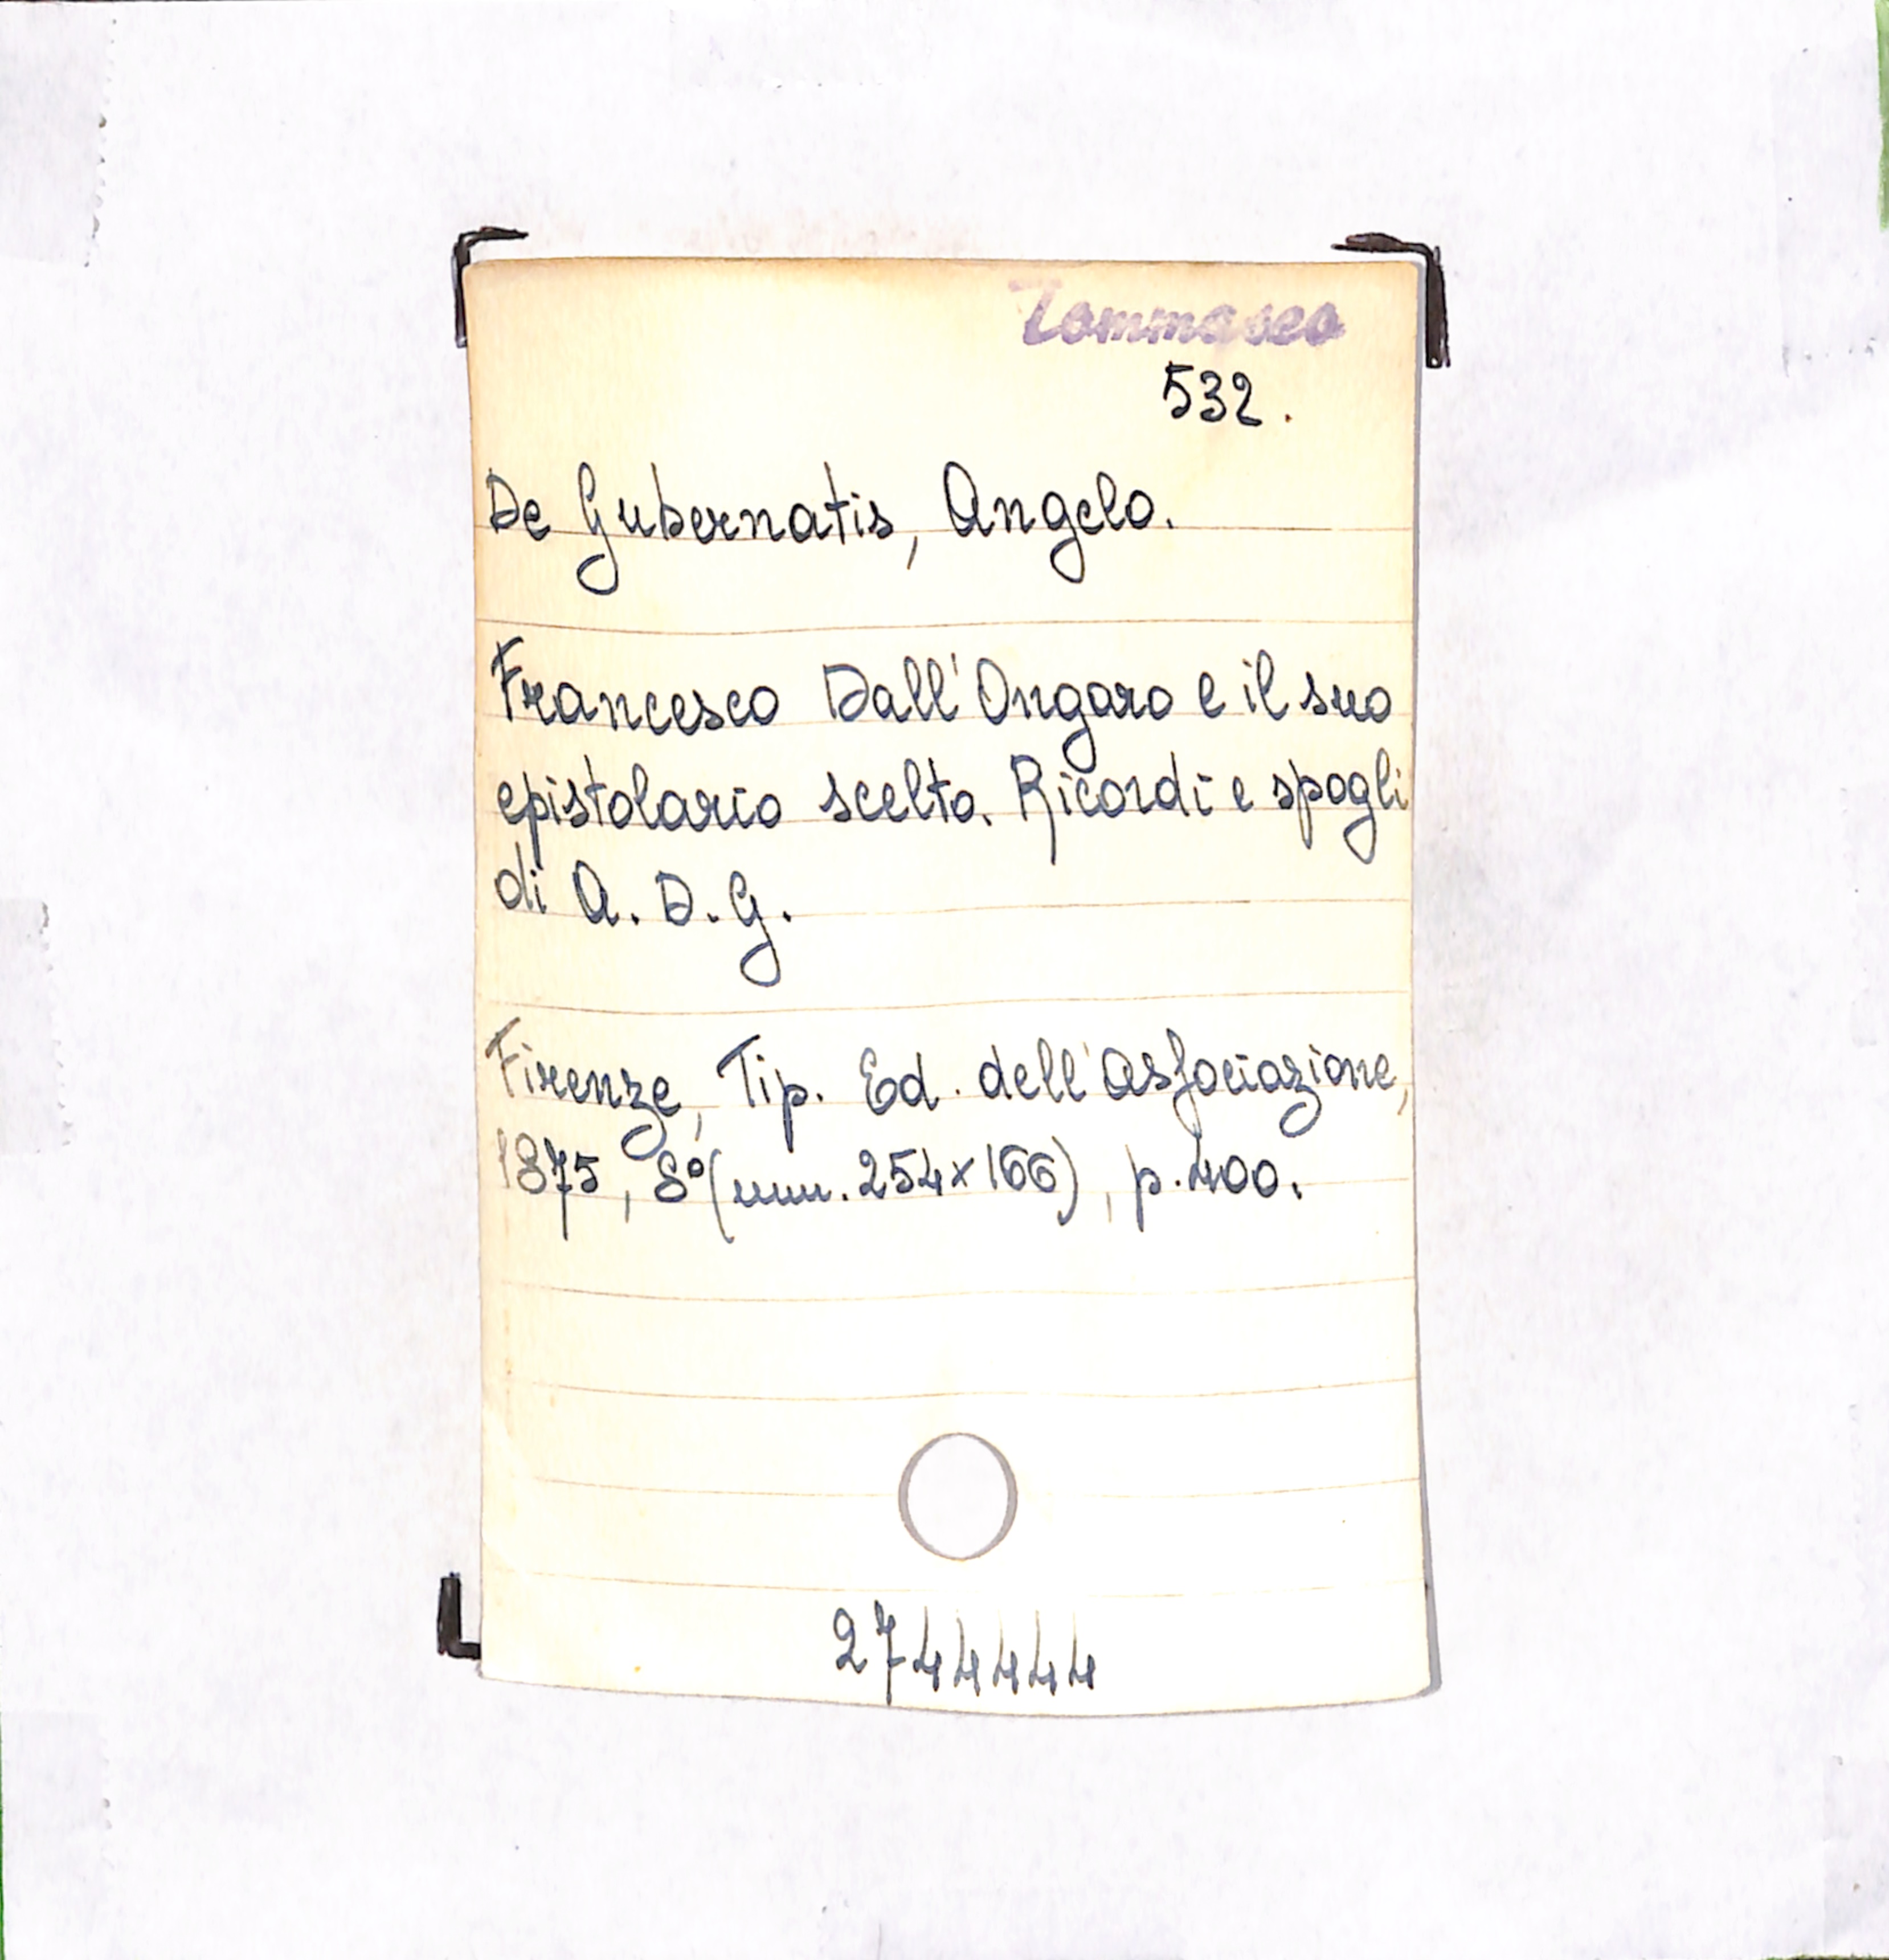 Tommaseo
532.
De Gubernatis, Angelo.
Francesco Dall'Ongaro e il suo
epistolario scelto. Ricordi e spogli
di A. D. G.
Firenze, Tip. Ed. dell'Associazione,
1875, 8º (mm. 254x166), p. 400.
2744444